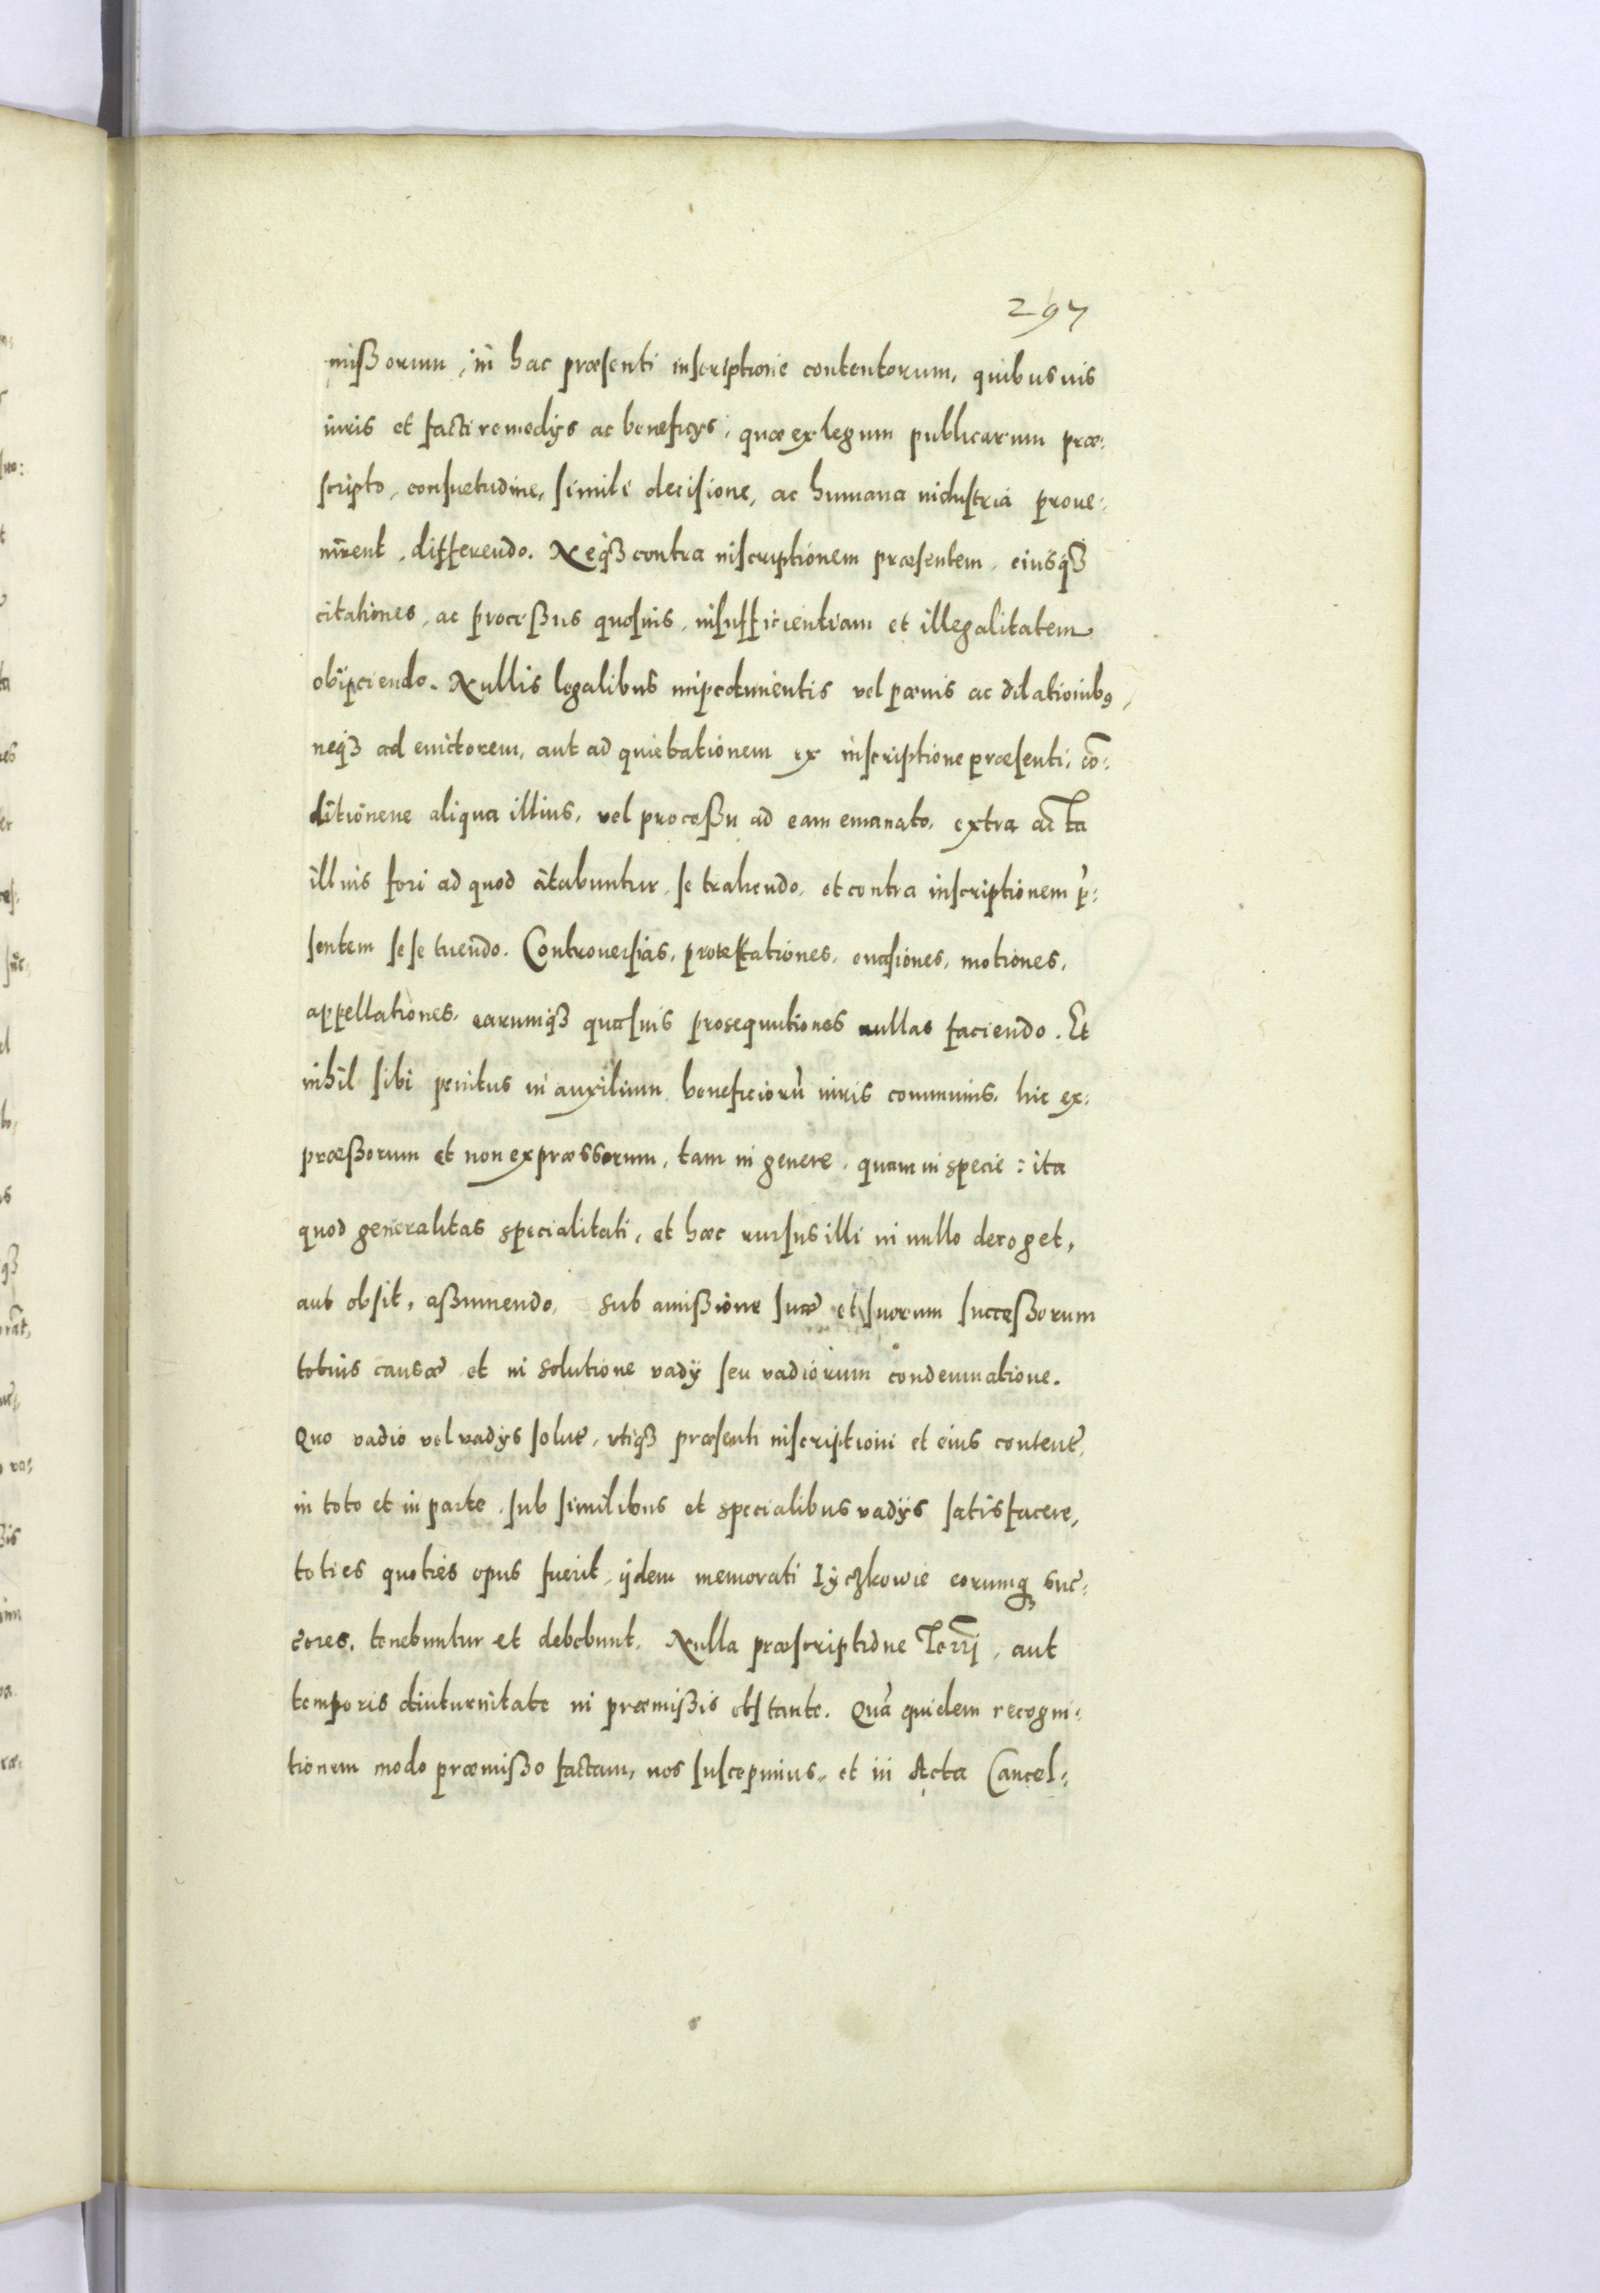 297
mißorum, in hac præsenti inscriptione contentorum, quibusuis
iuris et facti remedijs ac beneficijs, quæ ex legum publicarum præ:
scripto, consuetudine, simili decisione, ac humana industria proue:
nirent, differendo. Neqz contra inscriptionem præsentem, eiusqz
citationes, ac proceßus quosuis, insufficientiam et illegalitatem
obijciendo. Nullis legalibus impedimentis vel pænis ac dilationibq,
neqz ad euictorem, aut ad quietationem ex inscriptione præsenti, cō:
ditioneue aliqua illius, vel proceßu ad eam emanato, extra acta
illius fori ad quod citabuntur, se trahendo, et contra inscriptionem p̃:
sentem se se tuendo. Controuersias, protestationes, euasiones, motiones,
appellationes, earumqz quasuis prosequutiones nullas faciendo. Et
nihil sibi penitus in auxilium beneficiorũ iuris communis, hic ex:
præßorum et non expræssorum, tam in genere, quam in specie: ita
quod generalitas specialitati, et hæc rursus illi in nullo deroget,
aut obsit, aßumendo, sub amißione suæ et suorum succeßorum
totius causæ et in solutione vadij seu vadiorum condemnatione.
Quo vadio vel vadijs solut̃, vtiqz præsenti inscriptioni et eius content̃,
in toto et in parte, sub similibus et specialibus vadijs satisfacere,
toties quoties opus fuerit, ijdem memorati Iyczkowie eorumqz suc̃:
c̃ores, tenebuntur et debebunt. Nulla præscriptione Terrī, aut
temporis diuturnitate in præmißis obstante. Quã quidem recogni:
tionem modo præmißo factam, nos suscepimus, et in Acta Cancel: